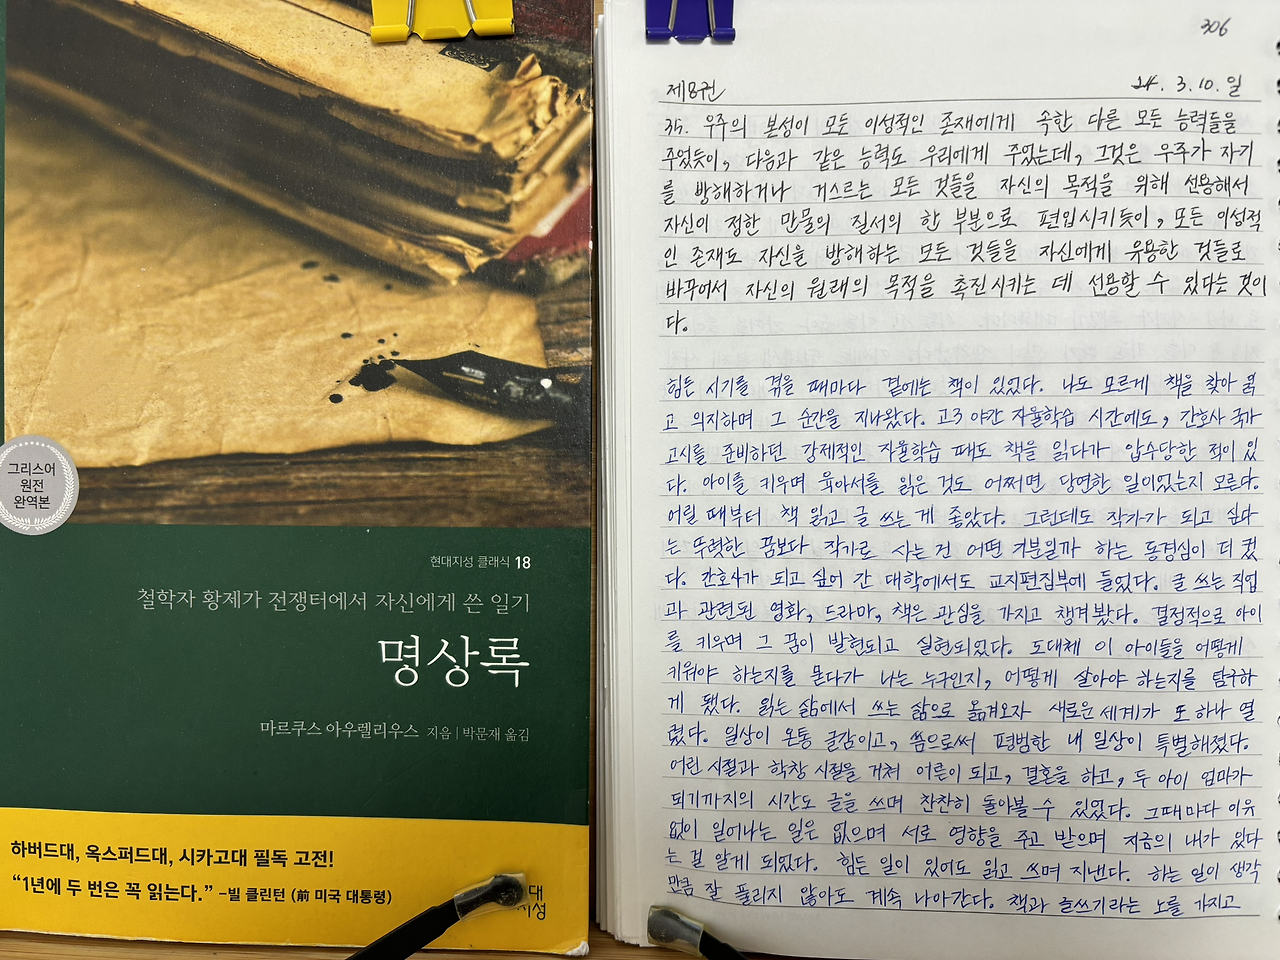 그리스어
원전
완역본
현대지성 클래식 18
철학자 황제가 전쟁터에서 자신에게 쓴 일기
명상록
마르쿠스 아우렐리우스 지음 | 박문재 옮김
하버드대, 옥스퍼드대, 시카고대 필독 고전!
“1년에 두 번은 꼭 읽는다.” –빌 클린턴 (前 미국 대통령)
대
지성
306
제8권 24. 3. 10. 일
35. 우주의 본성이 모든 이성적인 존재에게 속한 다른 모든 능력들을
주었듯이, 다음과 같은 능력도 우리에게 주었는데, 그것은 우주가 자기
를 방해하거나 거스르는 모든 것들을 자신의 목적을 위해 선용해서
자신이 정한 만물의 질서의 한 부분으로 편입시키듯이, 모든 이성적
인 존재도 자신을 방해하는 모든 것들을 자신에게 유용한 것들로
바꾸어서 자신의 원래의 목적을 촉진시키는 데 선용할 수 있다는 것이
다.
힘든 시기를 겪을 때마다 곁에는 책이 있었다. 나도 모르게 책을 찾아 읽
고 의지하며 그 순간을 지나왔다. 고3 야간 자율학습 시간에도, 간호사 국가
고시를 준비하던 강제적인 자율학습 때도 책을 읽다가 압수당한 적이 있
다. 아이를 키우며 육아서를 읽은 것도 어쩌면 당연한 일이었는지 모른다.
어릴 때부터 책 읽고 글 쓰는 게 좋았다. 그런데도 작가가 되고 싶다
는 뚜렷한 꿈보다 작가로 사는 건 어떤 기분일까 하는 동경심이 더 컸
다. 간호사가 되고 싶어 간 대학에서도 교지편집부에 들었다. 글 쓰는 직업
과 관련된 영화, 드라마, 책은 관심을 가지고 챙겨 봤다. 결정적으로 아이
를 키우며 그 꿈이 발현되고 실현되었다. 도대체 이 아이들을 어떻게
키워야 하는지를 묻다가 나는 누구인지, 어떻게 살아야 하는지를 탐구하
게 됐다. 읽는 삶에서 쓰는 삶으로 옮겨오자 새로운 세계가 또 하나 열
렸다. 일상이 온통 글감이고, 씀으로써 평범한 내 일상이 특별해졌다.
어린 시절과 학창 시절을 거쳐 어른이 되고, 결혼을 하고, 두 아이 엄마가
되기까지의 시간도 글을 쓰며 찬찬히 돌아볼 수 있었다. 그때마다 이유
없이 일어나는 일은 없으며 서로 영향을 주고 받으며 지금의 내가 왔다
는 걸 알게 되었다. 힘든 일이 있어도 읽고 쓰며 지낸다. 하는 일이 생각
만큼 잘 풀리지 않아도 계속 나아간다. 책과 글쓰기라는 노를 가지고